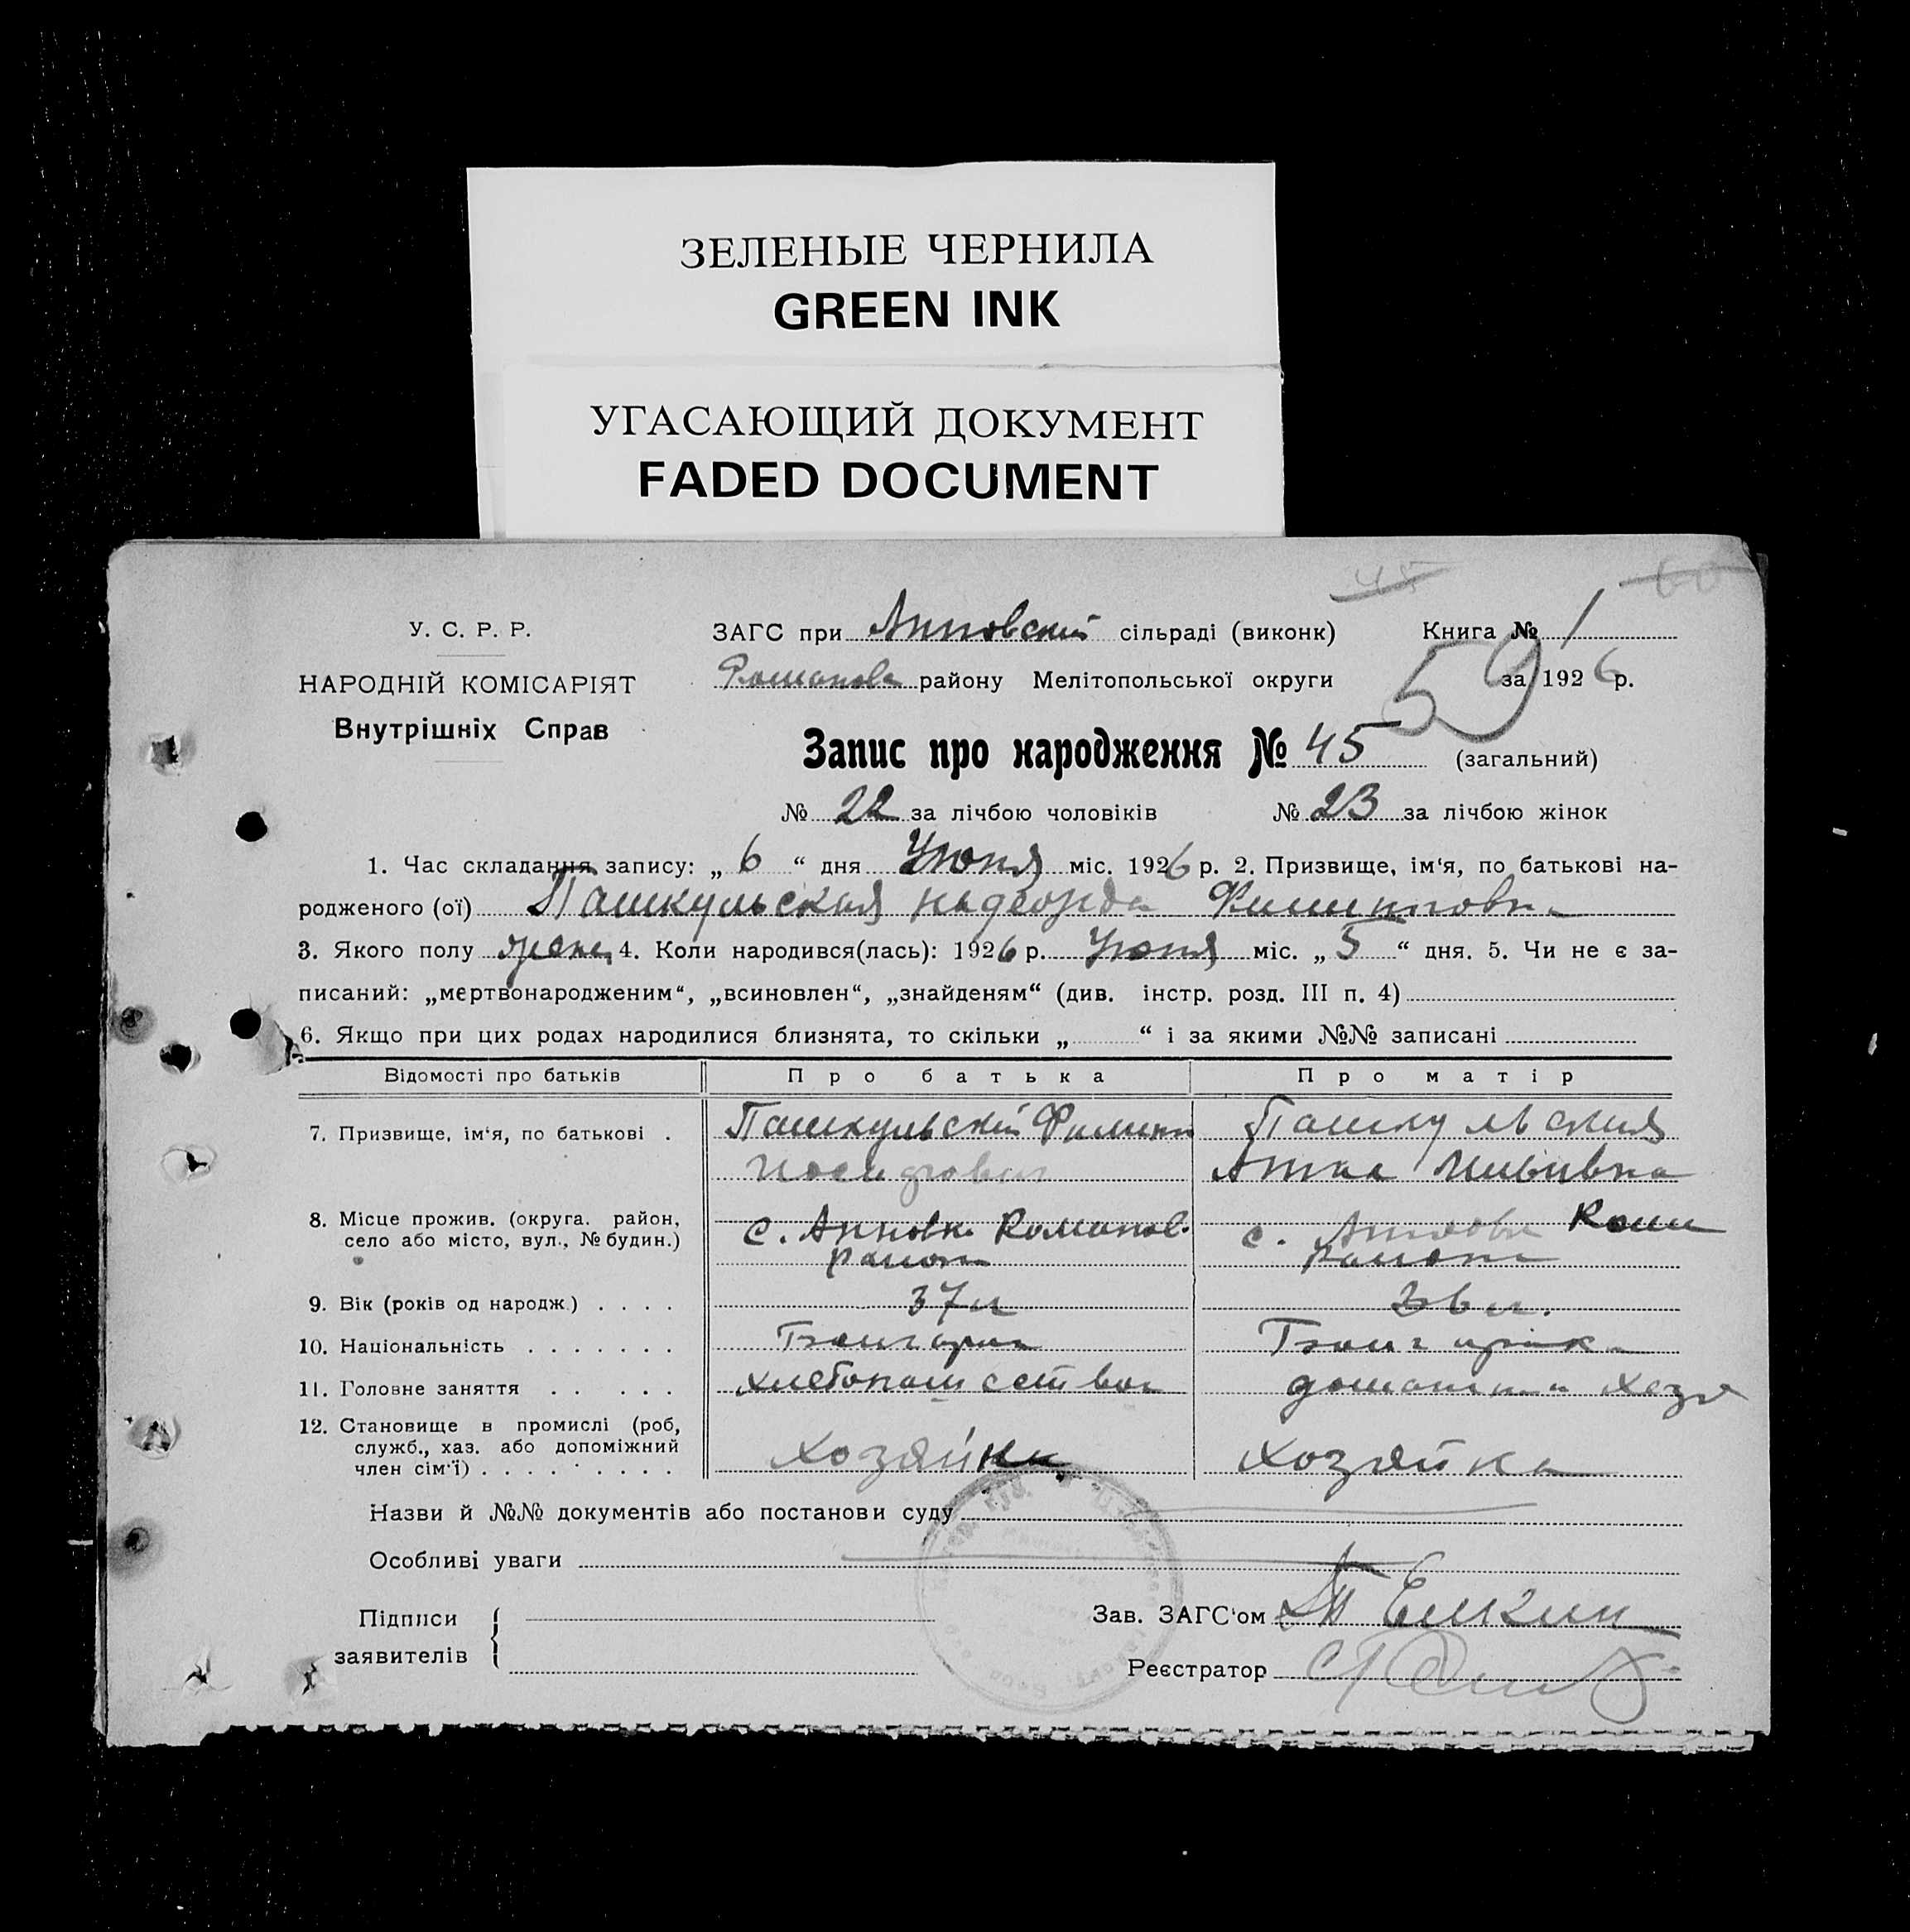 ЗЕЛЕНЫЕ ЧЕРНИЛА
GREEN INK
УГАСАЮЩИЙ ДОКУМЕНТ
FADED DOCUMENT
45
60
У. С. Р. Р.
НАРОДНІЙ КОМІСАРІЯТ
Внутрішніх Справ
ЗАГС при Анновский сільраді (виконк) Книга № 1
Романов район у Мелітопольської округи за 1926 р.
59
Запис про народження № 45 (загальний)
№ 22 за лічбою чоловіків № 23 за лічбою жінок
1. Час складання запису: „ 6 “ дня Июня міс. 1926 р. 2. Призвище, ім‘я, по батькові на-
родженого (ої) Пашкульская Надежда Филипповна
3. Якого полу женс 4. Коли народився(лась): 1926 р. Июня міс. „ 5 “ дня. 5. Чи не є за-
писаний: „мертвонародженим“, „всиновлен“, „знайденям“ (див. інстр. розд. III п. 4)
6. Якщо при цих родах народилися близнята, то скільки „ “ і за якими №№ записані
Відомості про батьків Про батька Про матір
7. Призвище, ім‘я, по батькові . Пашкульский Филипп Пашкульская
Иосифович Анна
8. Місце прожив. (округа. район, с. Анновка Романов. с. Анновка Ром
село або місто, вул., № будин.) района района
9. Вік (років од народж.) . . . . 37 л 36 л.
10. Національність . . . . . . . Болгарин Болгарка
11. Головне заняття . . . . . хлебопашество домашн хозя
12. Становище в промислі (роб,
служб., хаз. або допоміжний хозяин хозяйка
член сім‘ї) . . . . . . . . .
Назви й №№ документів або постанови суду
Особливі уваги
Підписи
заявителів
Зав. ЗАГС‘ом
Реєстратор